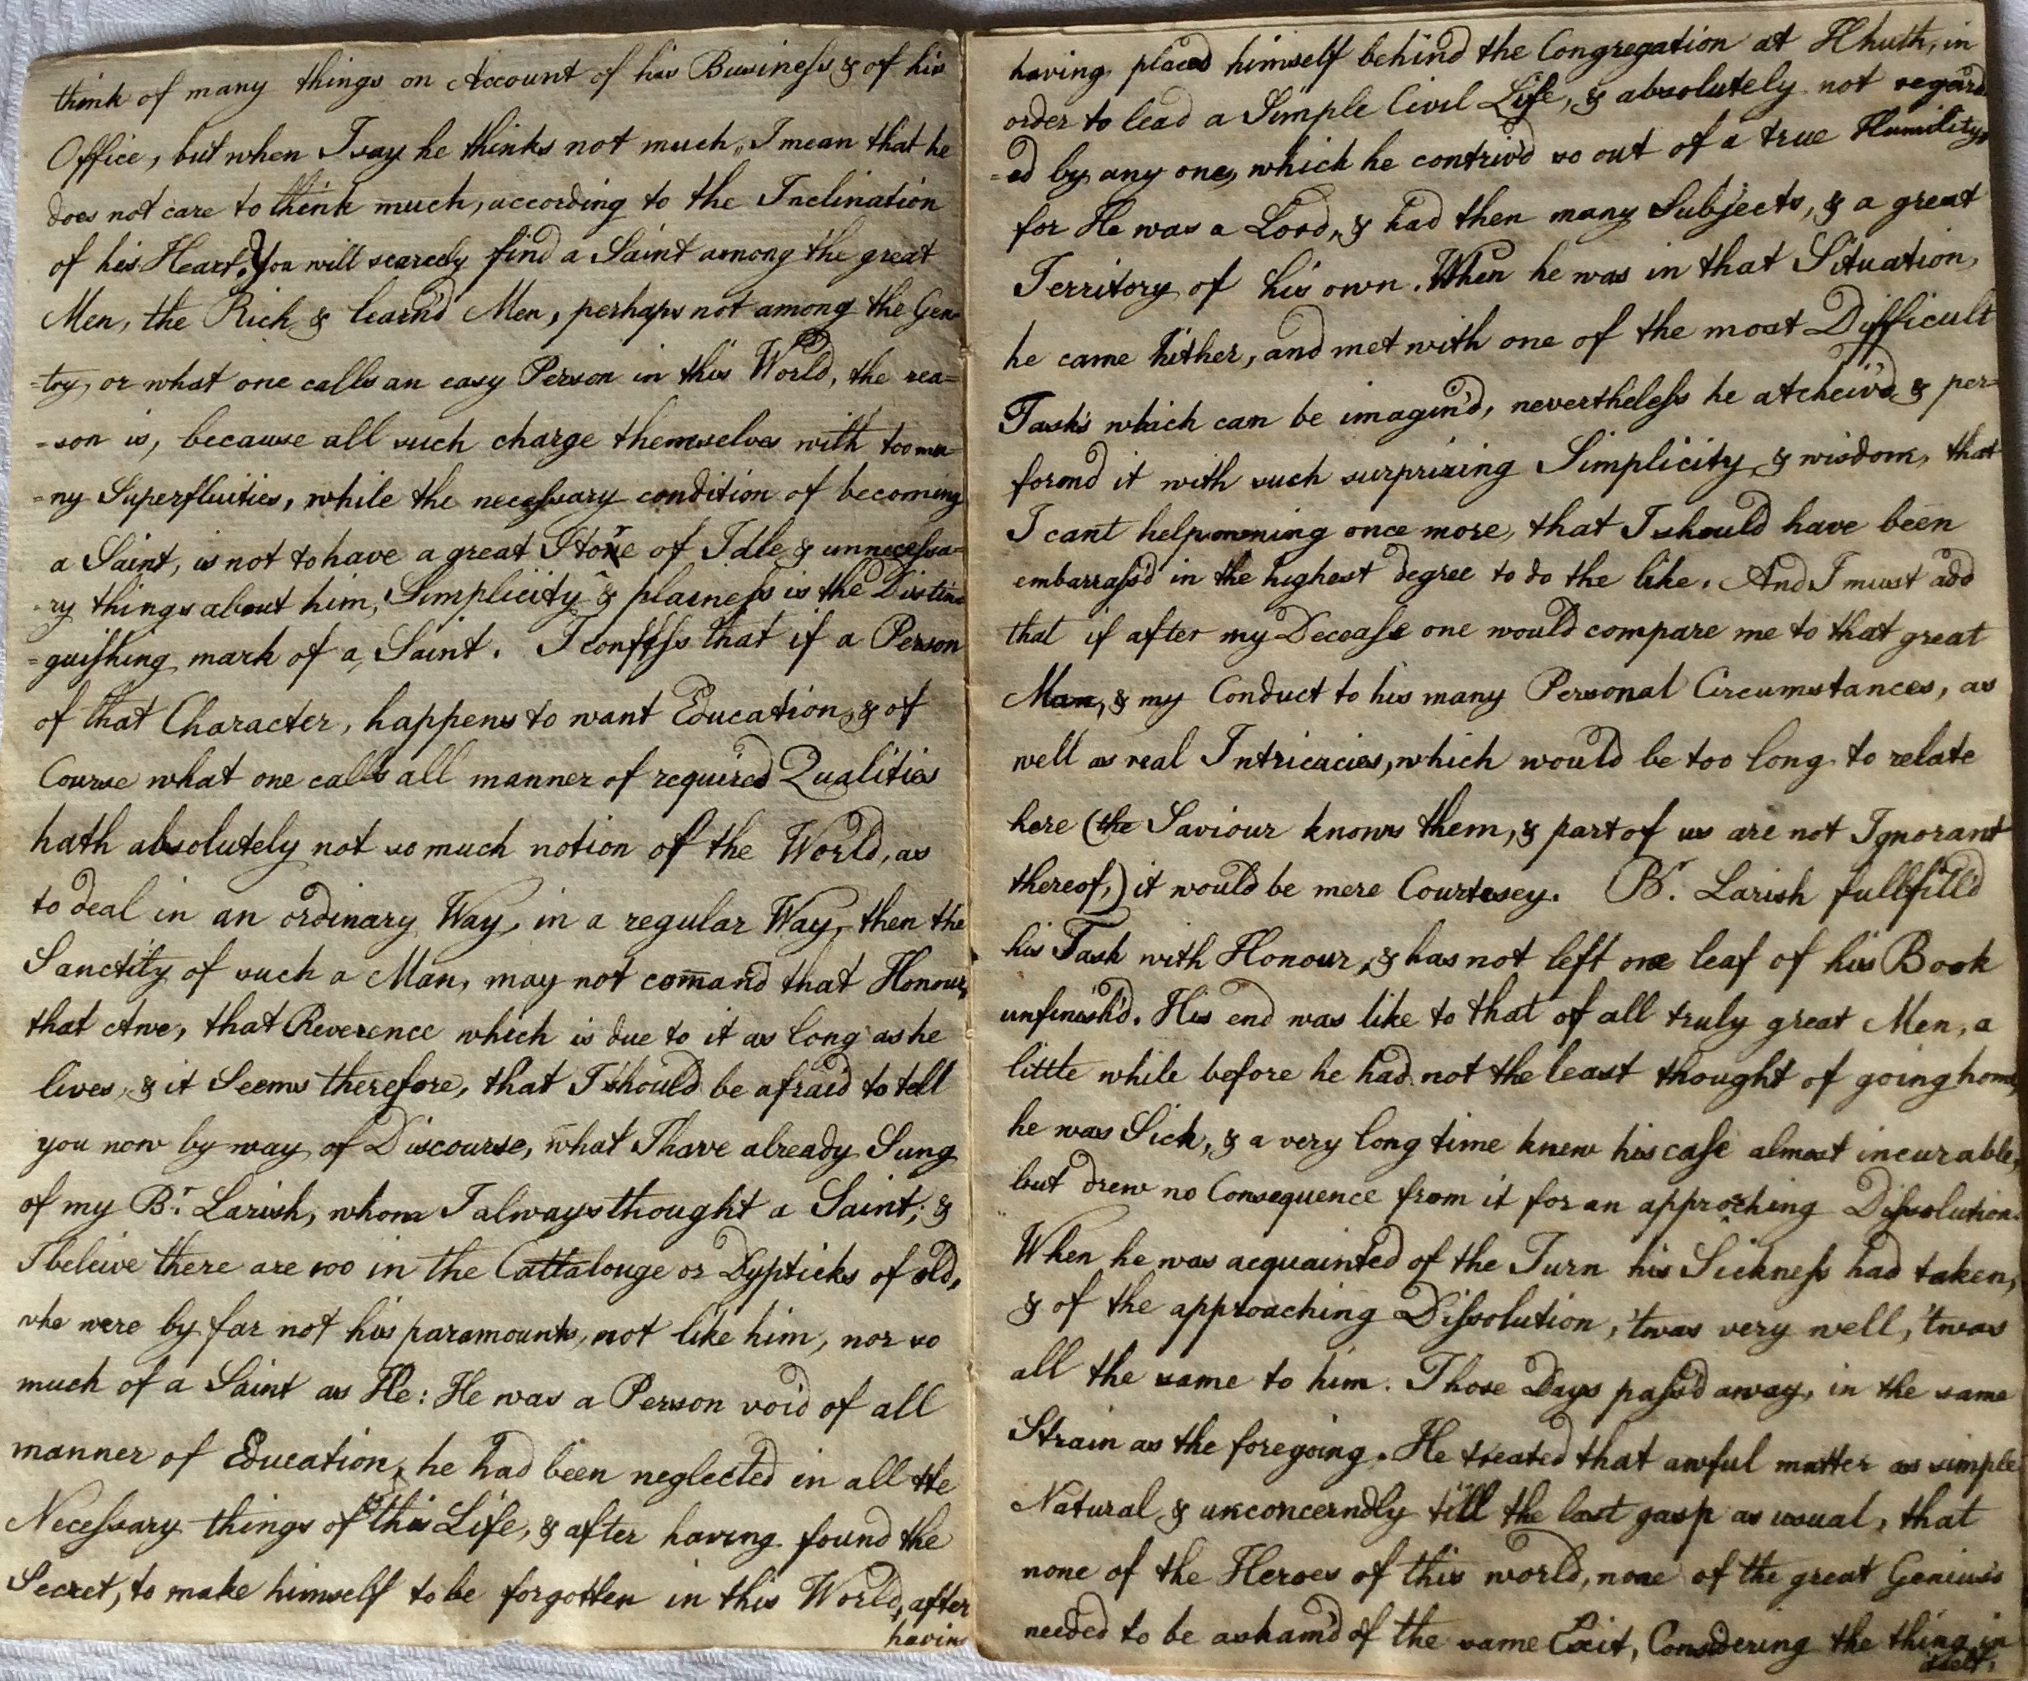 think of many things on Account of his Business & of his
Office, but when I say he thinks not much, I mean that he
does not care to think much, according to the Inclination
of his Heart. You will scarcely find a Saint among the great
Men, the Rich & learn'd Men, perhaps not among the Gen-
=try, or what one calls an easy Person in this World, the rea=
=son is, because all such charge themselves with too ma=
=ny Superfluities, while the necessary condition of becoming
a Saint, is not to have a great Store of Idle & unnecessa=
=ry things about him, Simplicity & plainness is the Distin
=guishing mark of a Saint. I confess that if a Person
of that Character, happens to want Education, & of
Course what one calls all manner of required Qualities
hath absolutely not so much notion of the World, as
to deal in an ordinary Way, in a regular Way, then the
Sanctity of such a Man, may not comand that Honour,
that Awe, that Reverence which is due to it as long as he
lives, & it Seems therefore, that I should be afraid to tell
you now by way of Discourse, what I have already Sung
of my Br. Larish, whom I always thought a Saint; &
I beleive there are 100 in the Cattalouge or Dypticks of old,
who were by far not his paramounts, not like him, nor so
much of a Saint as He: He was a Person void of all
manner of Education, he had been neglected in all the
Necessary things of this Life, & after having found the
Secret, to make himself to be forgotten in this World, after
having
having placed himself behind the Congregation at Hhuth, in
order to lead a Simple Civil Life, & absolutely not regard
=ed by any one, which he contriv'd so out of a true Humility,
for He was a Lord, & had then many Subjects, & a great
Territory of his own. When he was in that Situation,
he came hither, and met with one of the most Difficult
Tasks which can be imagin'd, nevertheless he atcheiv'd & per=
formd it with such surprizing Simplicity & wisdom, that
I cant help owning once more, that I should have been
embarrass'd in the highest degree to do the like. And I must add
that if after my Decease one would compare me to that great
Man, & my Conduct to his many Personal Circumstances, as
well as real Intricacies, which would be too long to relate
here (the Saviour knows them, & part of us are not Ignorant
thereof,) it would be mere Courtesey. Br. Larish fullfill'd
his Task with Honour, & has not left one leaf of his Book
unfinish'd. His end was like to that of all truly great Men, a
little while before he had not the least thought of going home,
he was Sick, & a very long time knew his case almost incurable,
but drew no Consequence from it for an approching Dissolution.
When he was acquainted of the Turn his Sickness had taken,
& of the approaching Dissolution, 'twas very well, 'twas
all the same to him. Those Days pass'd away, in the same
Strain as the foregoing. He treated that awful matter as simple
Natural & unconcerndly till the last gasp as usual, that
none of the Heroes of this world, none of the great Genius's
needed to be asham'd of the same Exit, Considering the thing in
itself.